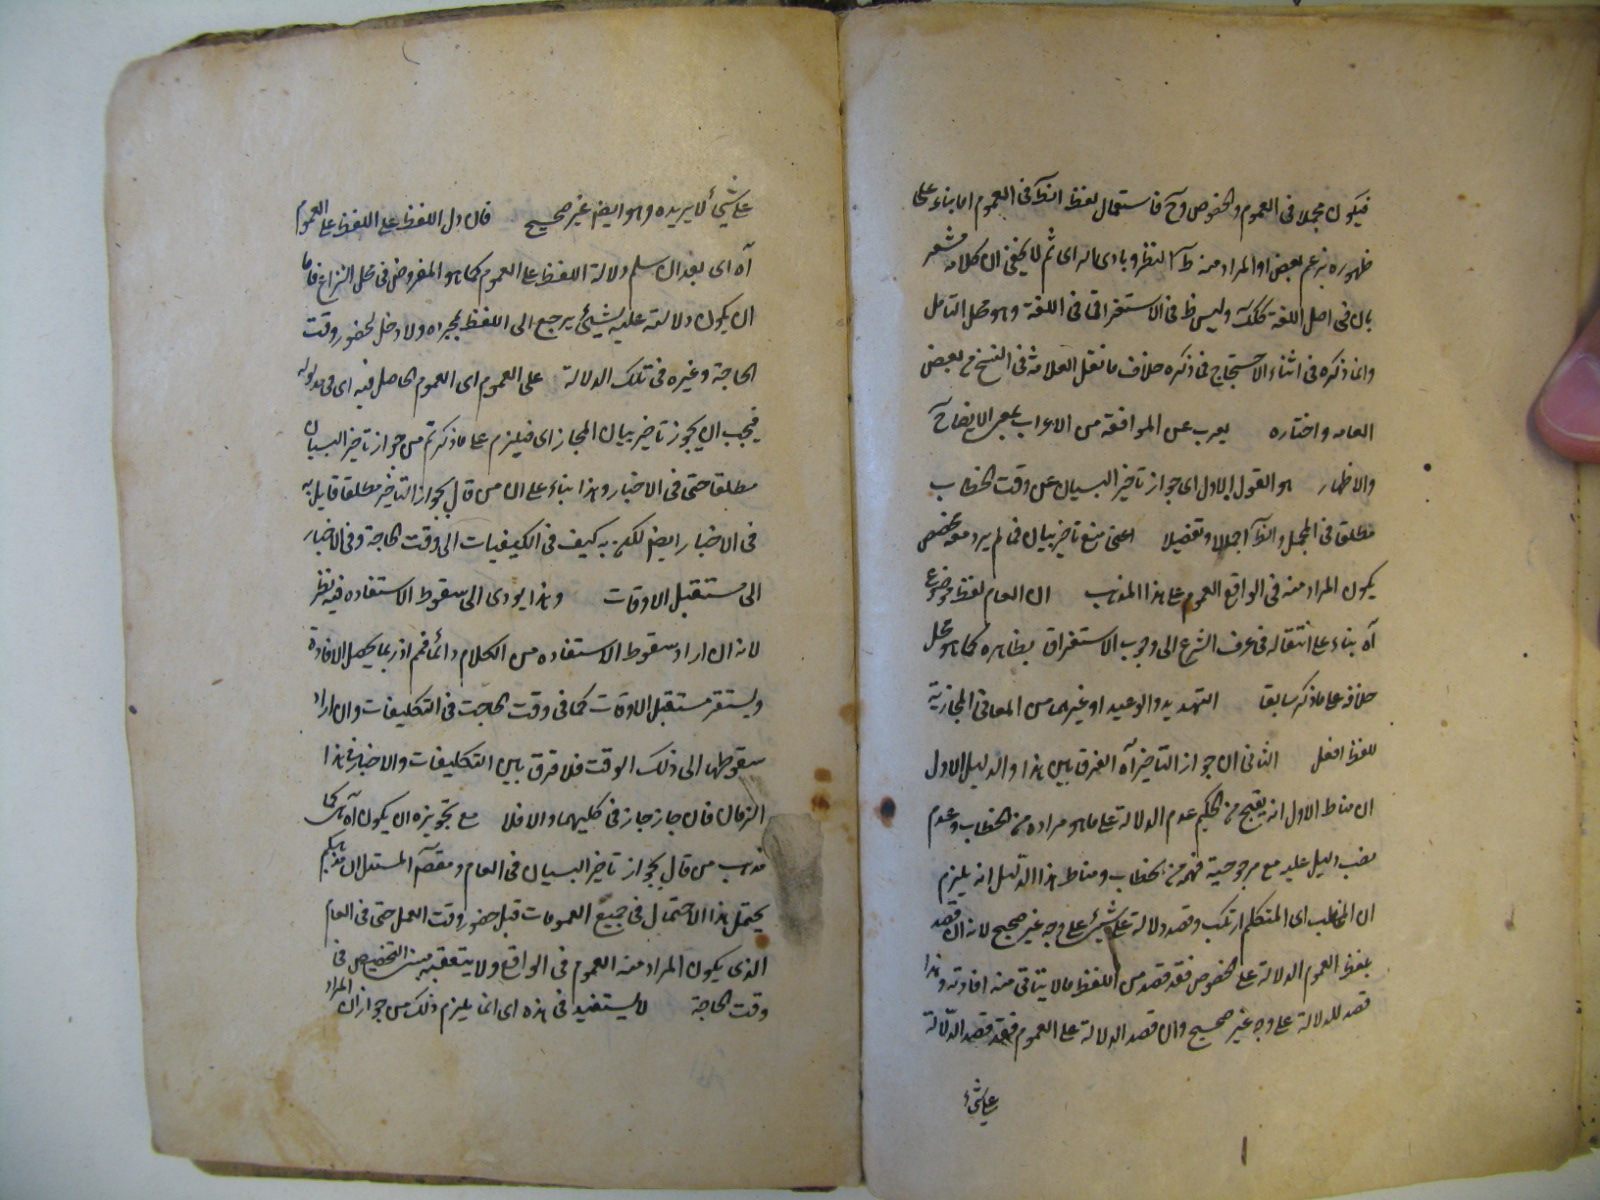 فيكون مجملا في العموم والخصوص وح فاستعمال لفظ الظ في العموم اما بناء على
ظهوره بزعم بعض او المراد منه ظ النظر وبادى الراى ثم لا يخفى ان كلامه مشعر
بان في اصل اللغة كك وليس ظ في الاستغراق في اللغة وهو محل التامل
وانما ذكره في اثناء الاحتجاج في ذكره خلاف ما نقل العلامة في النسخ عن بعض
العامه واختاره يعرب عن الموافقة من الاعراب بمعنى الايضاح
والاظهار هو القول الاول اى جواز تاخير البيان عن وقت الخطاب
مطلقا في المجمل والظ اجمالا وتفصيلا اعنى منع تاخير بيان في لم يرد معه مخصص
يكون المراد منه في الواقع العموم على هذا المذهب ان العام لفظ موضوع
آه بناء على انتقاله في عرف الشرع الى وجوب الاستغراق بظاهره كما هو محل
خلافه على ما ذكر سابقا التهديد والوعيد او غيرهما من المعاني المجازية
للفظ افعل الثاني ان جواز التاخير آه الفرق بين هذا والدليل الاول
ان مناط الاول انه يقبح من الحكيم عدم الدلالة على ما هو مراده من الخطاب وعدم
نصب دليل عليه مع مرجوحية فهمه من الخطاب ومناط هذا الدليل انه يلزم
ان المخاطب اى المتكلم ارتكب وقصد دلالة على شئ على وجه غير صحيح لانه ان قصد
بلفظ العموم الدلالة على الخصوص فقد قصد من اللفظ ما لا يتاتى منه افادته وهذا
قصد للدلالة على وجه غير صحيح وان قصد الدلالة على العموم فقد قصد الدلالة
على شئ
على شئ لا يريده وهو ايض غير صحيح فان دل اللفظ على اللفظ على العموم
آه اى بعد ان سلم دلالة اللفظ على العموم كما هو المفروض في محل النزاع فاما
ان يكون دلالته عليه لشئ يرجع الى اللفظ بمجرده ولا دخل لحضور وقت
الحاجة وغيره في تلك الدلالة على العموم اى العموم الحاصل فيه اى في مدلوله
فيجب ان يجوز تاخير بيان المجاز اى فيلزم على ما ذكرتم من جواز تاخير البيان
مطلقا حتى في الاخبار وهذا بناء على ان من قال بجواز التاخير مطلقا قايل به
في الاخبار ايض لكن به كيف في التكليفات الى وقت الحاجة وفي الاخبار
الى مستقبل الاوقات وهذا يودى الى سقوط الاستفاده فيه نظر
لانه ان اراد سقوط الاستفاده من الكلام دائما فمم اذ ربما يحصل الافادة
ويستقر مستقبل الاوقات كما في وقت الحاجة في التكليفات وان اراد
سقوطها الى ذلك الوقت فلا فرق بين التكليفات والاخبار في هذا
الزمان فان جاز جاز في كليهما والا فلا مع تجويزه ان يكون آه كما
مذهب من قال بجواز تاخير البيان في العام ومقصد المستدل ان مذهبكم
يحتمل هذا الاحتمال في جميع العمومات قبل حضور وقت العمل حتى في العام
الذى يكون المراد منه العموم في الواقع ولا يتعقبه التخصيص في
وقت الحاجة لا يستفيد في هذه اى انما يلزم ذلك من جواز ان المراد